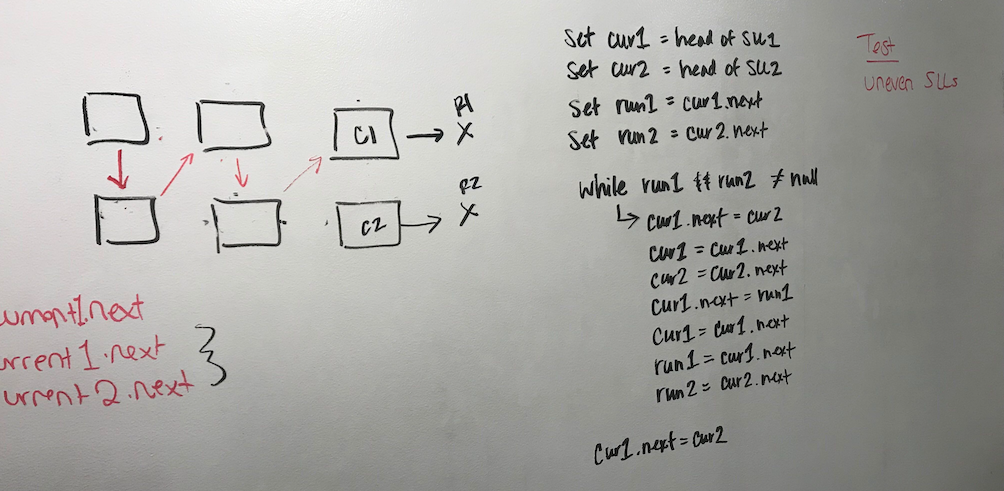 C1
R1
X
C2
R2
X
.next
urrent1.next
urrent2.next
Set cur1 = head of SLL1
Set cur2 = head of SLL2
Set run1 = cur1.next
Set run2 = cur2.next
While run1 && run2 ≠ null
↳ cur1.next = cur2
cur1 = cur1.next
cur2 = cur2.next
cur1.next = run1
cur1 = cur1.next
run1 = cur1.next
run2 = cur2.next
cur1.next = cur2
Test
uneven SLLs